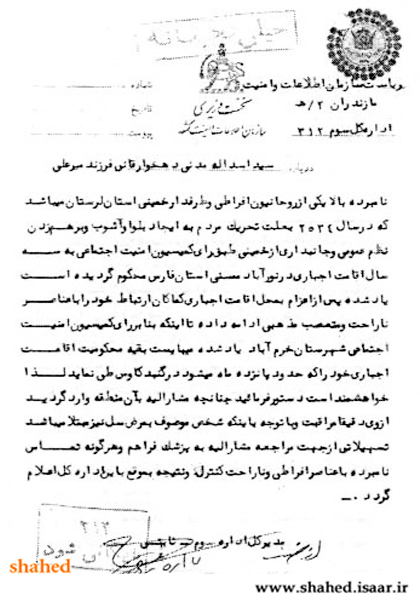 خیلی محرمانه
ریاست سازمان اطلاعات و امنیت
مازندران ۲/هـ
اداره کل سوم ۳۱۲
نخست وزیری
سازمان اطلاعات و امنیت کشور
شماره
تاریخ
پیوست
درباره سید اسداله مدنی دهخوارقانی فرزند میرعلی
نامبرده بالا یکی از روحانیون افراطی و طرفدار خمینی استان لرستان میباشد
که در سال ۲۵۳۴ بعلت تحریک مردم به ایجاد بلوا و آشوب و برهم زدن
نظم عمومی و جانبداری از خمینی طبق رای کمیسیون امنیت اجتماعی به سه
سال اقامت اجباری در نورآباد ممسنی استان فارس محکوم گردیده است
یاد شده پس از اعزام بمحل اقامت اجباری کماکان ارتباط خود را با عناصر
ناراحت و متعصب مذهبی ادامه داده تا اینکه بنا برای کمیسیون امنیت
اجتماعی شهرستان خرم آباد یاد شده میبایست بقیه محکومیت اقامت
اجباری خود را که حدود پانزده ماه میشود در گنبد کاوس طی نماید لذا
خواهشمند است دستور فرمائید چنانچه مشارالیه بآن منطقه وارد گردید
از وی دقیقا مراقبت و با توجه باینکه شخص موصوف بمرض سل نیز مبتلا میباشد
تسهیلاتی از جهت مراجعه مشارالیه به پزشک فراهم و هرگونه تماس
نامبرده با عناصر افراطی و ناراحت کنترل و نتیجه بموقع باین اداره کل اعلام
گردد .—
مدیر کل اداره سوم ثابتی
۳۱۲
شود
shahed
www.shahed.isaar.ir